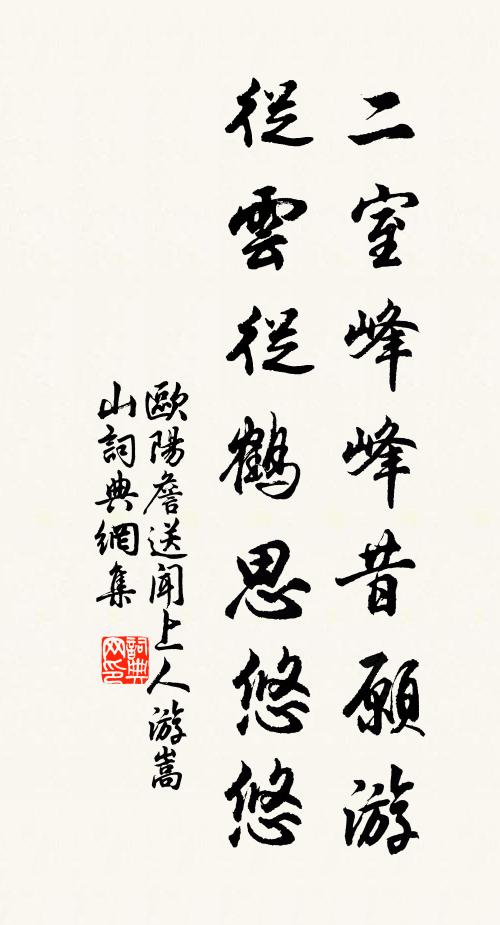 二室峰峰昔願游
從雲從鶴思悠悠
歐陽詹送聞上人游嵩
山詞典網集
詞典网印